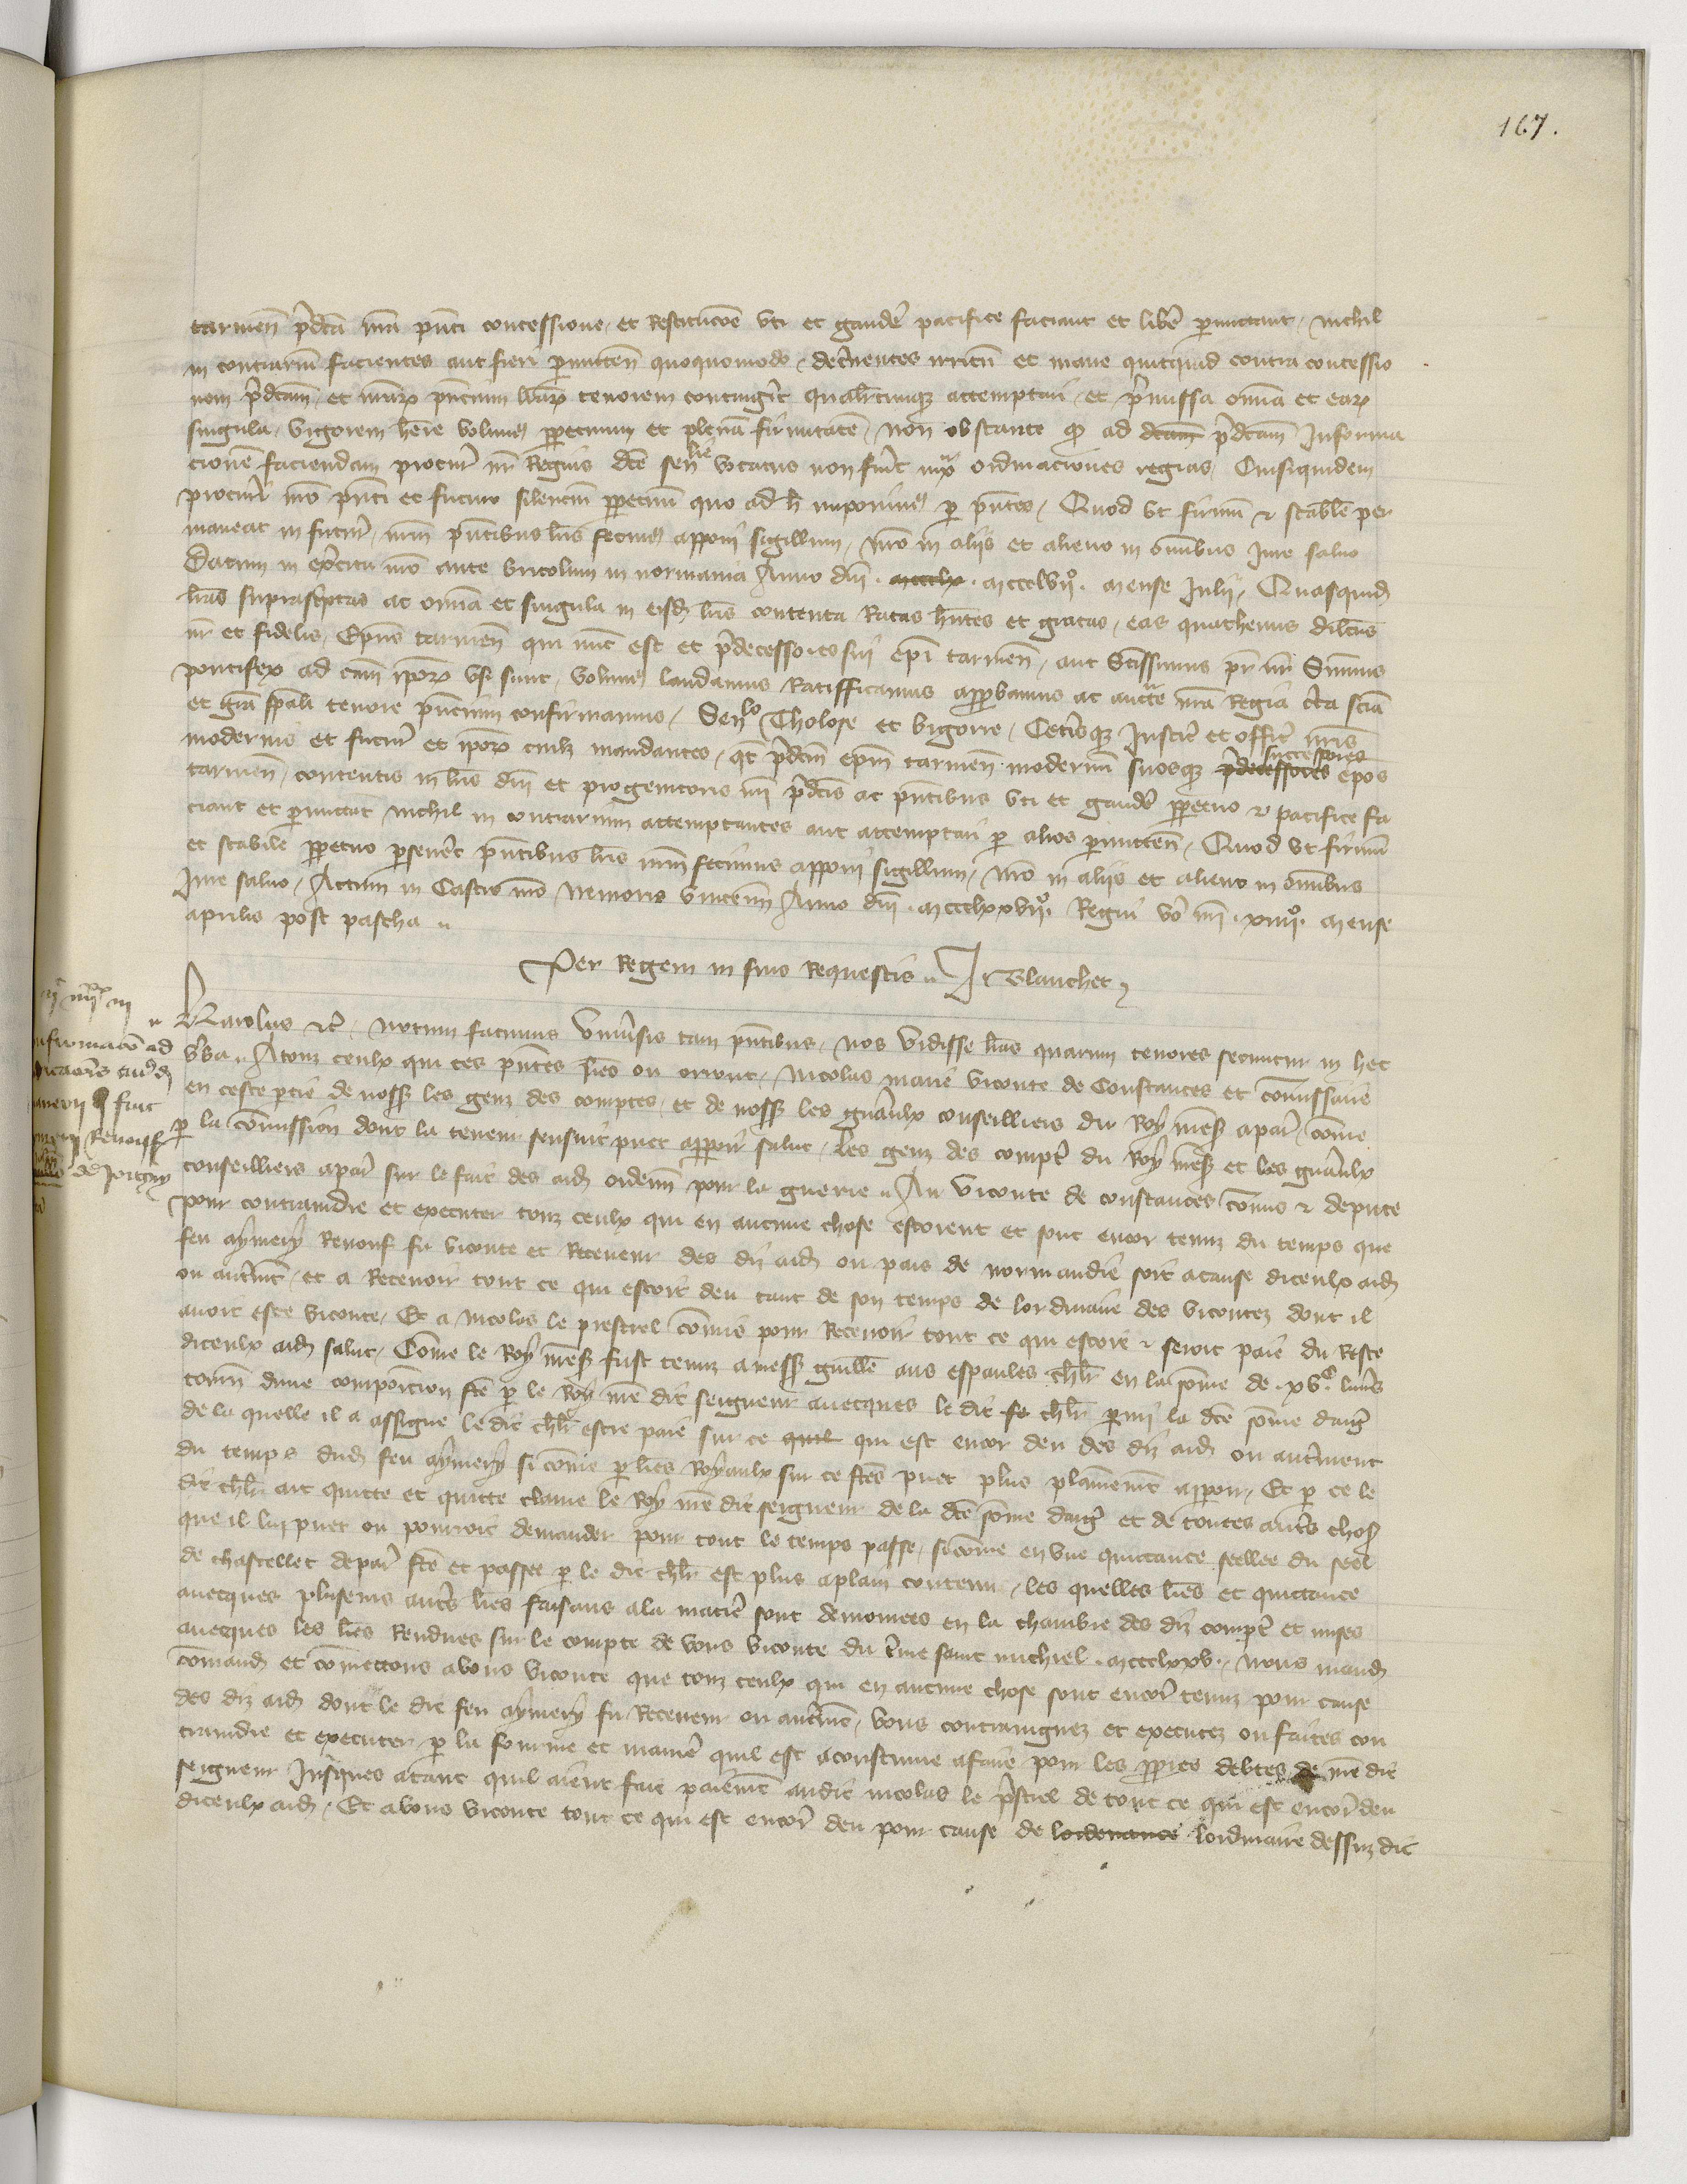 167.
tarmen̄ p̃dcā nr̄a pn̄ti concessione et restitucōe uti et gaudẽ pacifice faciant et libẽ p̱mittant, nichil
in contrarium facientes aut fieri p̱mitten̄ quoquomodo, dec̃nentes irritū et inane quicquid contra concessio
nem p̃dcām et nr̄ar̨ pn̄cium lr̄ar̨ tenorem contingẽt qualr̄cunq̨ attemptari, et p̃missa om̄ia et ear̨
singula, vigorem hr̄e volum⁹ p̱petuum et plenā firmitatē, non obstante q̨ ad dcām p̃dcām informa
cionē faciendam procur̃ nr̄ regius dcē senlie vocatus non fuit iux̃ ordinaciones regias, cuisiquidem
procur̃i nrō pn̄ti et futuro silenciū p̱petuū quo ad h̄ imponim⁹ p̱ pn̄tes, Quod ut firmū & stabile per
maneat in futur̃, nrm̄ pn̄tibus lr̄is fecim⁹ apponi sigillum, nrō in aliis et alieno in om̄ibus iure salvo
Datum in exc̃itu nrō ante britolium in normania Anno dn̄i . mccclx . mccclvi⁰ . mense Julii, Quasquid̨
lr̄as suprasc̃ptas ac om̄ia et singula in eisd̨ lr̄is contenta ratas hn̄tes et gratas, eas quathenus dilcūs
nr̄ et fidelis, Ep̄us tarmen̄ qui nūc est et p̃decessores sui ep̄i tarmen̄, aut Sc̄issimus pr̄ nr̄ Summus
pontifex ad cam̄ ip̄or̨ usi sunt, volum⁹ laudamus ratifficamus app̱bamus ac auct̃te nr̄a regia c̃ta sciā
et grā sp̄ali tenore pn̄cium confirmamus, Senlo Tholose et bigorre, Cet̃isq̨ Justic̃ et offic̃ nr̄is
modernis et futur̃ et ip̄or̨ cuilz mandantes, qt̃ p̃dcm̄ ep̄m tarmen̄ modernū suosq̨ p̃decessores successores ep̄os
tarmen̄, contentis in lr̄is dn̄i et progenitoris nr̄i p̃dcis ac pn̄tibus uti et gaudẽ p̱petuo & pacifice fa
ciant et p̱mittāt nichil in contrarium attemptantes aut attemptari p̱ alios p̱mitten̄, Quod ut firmū
et stabile p̱petuo p̱sevẽt pn̄tibus lr̄is nrm̄ fecimus apponi sigillum, nrō in aliis et alieno in om̄ibus
iure salvo, Actum in Castro nrō nemoris vincenn̄ Anno dn̄i . mccclxxvii⁰ . Regni v̄o nr̄i . xiiii⁰ . mense
aprilis post pascha
Per Regem in suis requestis Jr Blanchet
Karolus &c̃, notum facimus uniṽsis tam pn̄tibus, nos vidisse lr̄as quarum tenores secuntur in hec
v̄ba, A touz ceulx qui ces pn̄tes lr̄es ou orront, Nicolas marie viconte de Constances et com̄issaire
en ceste p̱tie de noss̨ les genz des comptes, et de noss̨ les gñaulx conseilliers du Roy nr̄es̨ a par̃, com̄e
p̱ la com̄ission dont la teneur sensuit puet app̱oir salut, les genz des compt̃ du Roy nr̄es̨ et les gñaulx
conseilliers a par̃ sur le fait des aid̨ ordenn̄ pour la guerre Au viconte de constances com̄is & depute
pour contraindre et executer touz ceulx qui en aucune chose estoient et sont encor tenuz du temps que
feu aymery Renouf fu viconte et receveur des dis aid̨ ou pais de normandie soit a cause diceulx aid̨
ou aut̃mēt, et a recevoir tout ce qui estoit deu tant de son temps de lordinaire des vicontez dont il
avoit este viconte, Et a nicolas le prestrel com̄is pour recevoir tout ce qui estoit & seroit paie du reste
diceulx aid̨ salut, Com̄e le Roy nr̄es̨ fust tenuz a mess̨ guille aus espaules chlr̄ en la som̄e de . xvᶜ . livr̃
tourn̄ dune composicion fcē p̱ le Roy nr̄e dit seigneur avecques le dit fe chlr̄ p̱mi la dcē som̄e darg̃
de la quelle il a assigne le dit chlr̄ estre paie sur ce quil qui est encor deu des dis aid̨ ou aut̃ment
du temps dud̨ feu aymery si com̄e p̱ lr̄es Royaulx sur ce fcēs puet plus plainemēt app̱oir, Et p̱ ce le
dit chlr̄ ait quitte et quitte clame le Roy nr̄e dit seigneur de la dcē som̄e darg̃ et de toutes aut̃s chos̨
que il luy puet ou pourroit demander pour tout le temps passe, si com̄e en une quittance seellee du seel
de chastellet de par̃ fcē et passee p̱ le dit chlr̄ est plus aplain contenu, les quelles lr̄es et quittance
avecques pluseurs aut̃s lr̄es faisans a la matiẽ sont demourees en la chambre des diz compt̃ et mises
avecques les lr̄es rendues sur le compte de vous viconte du t̃me saint michiel . mccclxxv ., nous mand̨
com̄and̨ et com̄ettons a vous viconte que touz ceulx qui en aucune chose sont encor̃ tenuz pour cause
des diz aid̨ dont le dit feu aymery fu receveur ou aut̃mēt, vous contraingnez et executez ou faites con
traindre et executer, p̱ la fourme et maniẽ quil est acoustume a faire pour les p̱pres debtes de nr̄e dit
seigneur Jusques atant quil aient fait paiemēt au dit nicolas le p̃strel de tout ce qui est encor̃ deu
diceulx aid̨, Et a vous viconte tout ce qui est encor̃ deu pour cause de lordenance lordinaire dessuz dit
Renouf